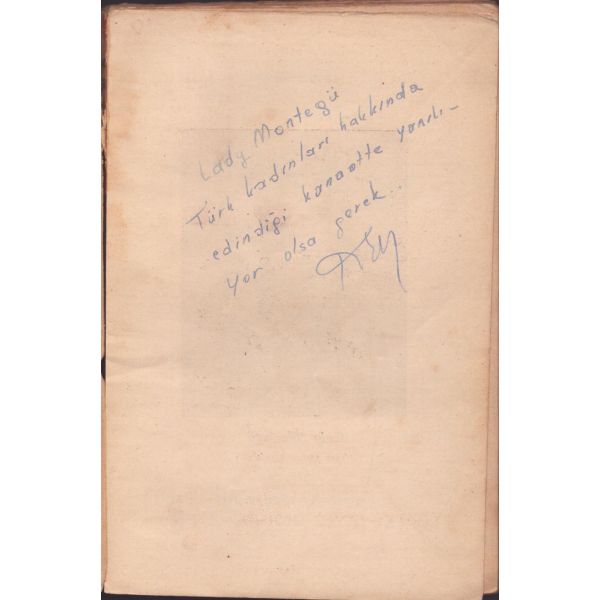 Lady Montegü
Türk kadınları hakkında
edindiği kanaatte yanılı-
yor olsa gerek..